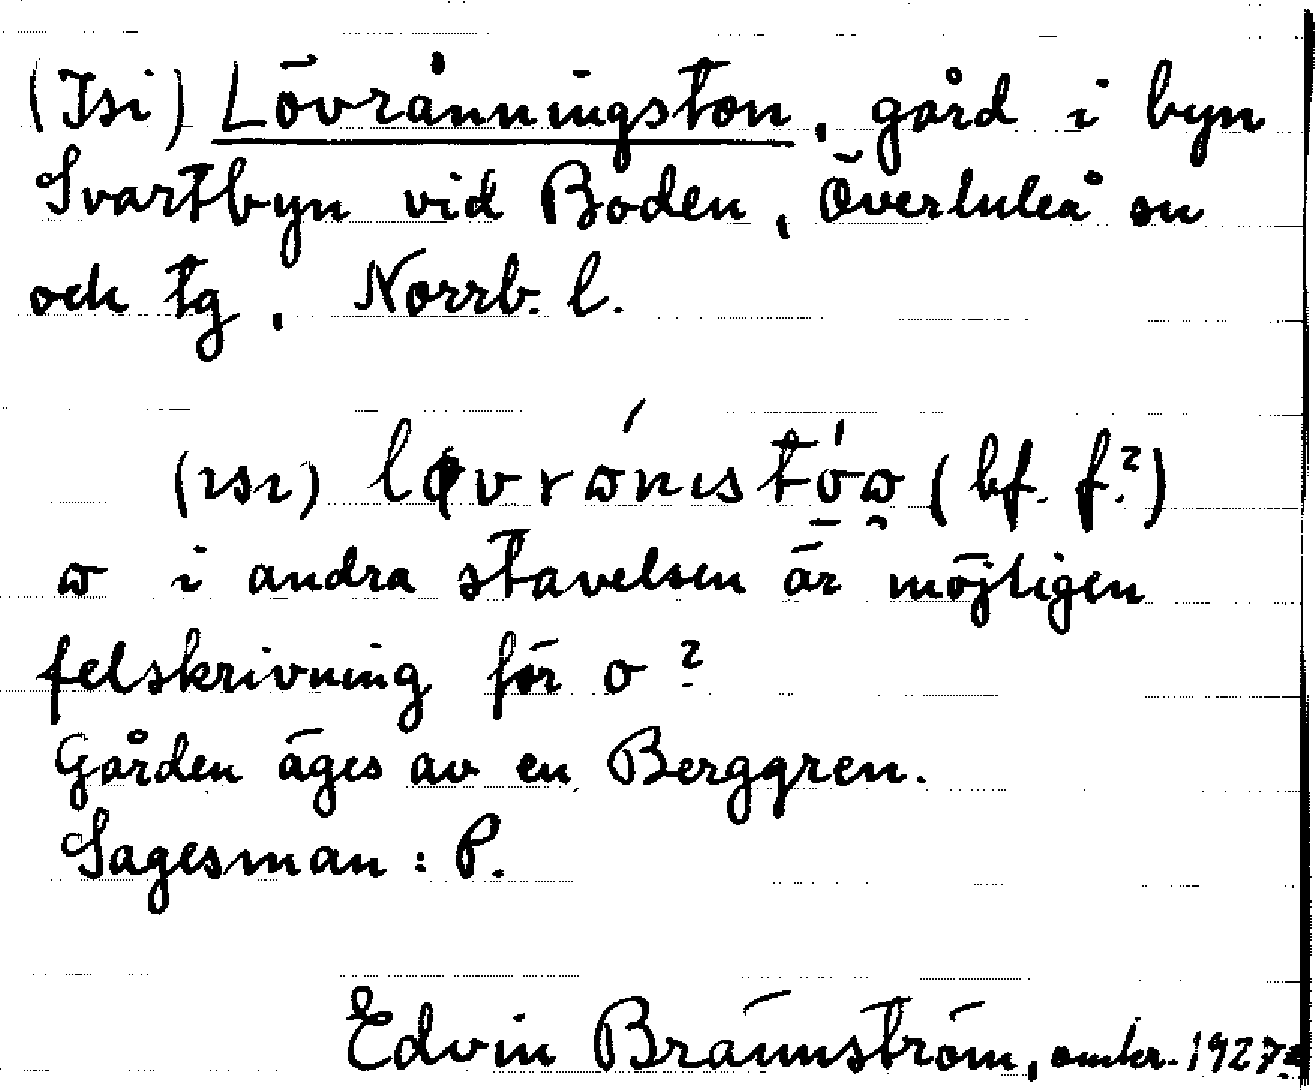 (Isi) Lövrånningston, gård i byn
Svartbyn vid Boden, Överluleå sn
och tg, Norrb. l.
(bf. f.?)
i andra stavelsen är möjligen
felskrivning för o?
Gården äges av en Berggren.
Sagesman: P.
Edvin Brännström, omkr. 1927